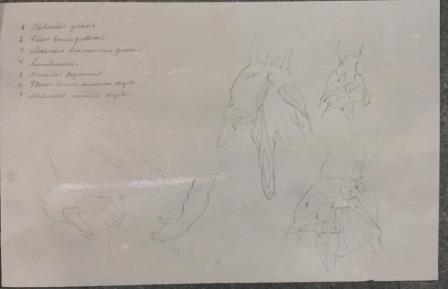 1. Abductor pollicis
2. Flexor brevis pollicis
3. Abductor transversus pollicis
4. Lumbricales
5. Annular ligament
6. Flexor brevis minimi digiti
7. Abductor minimi digiti